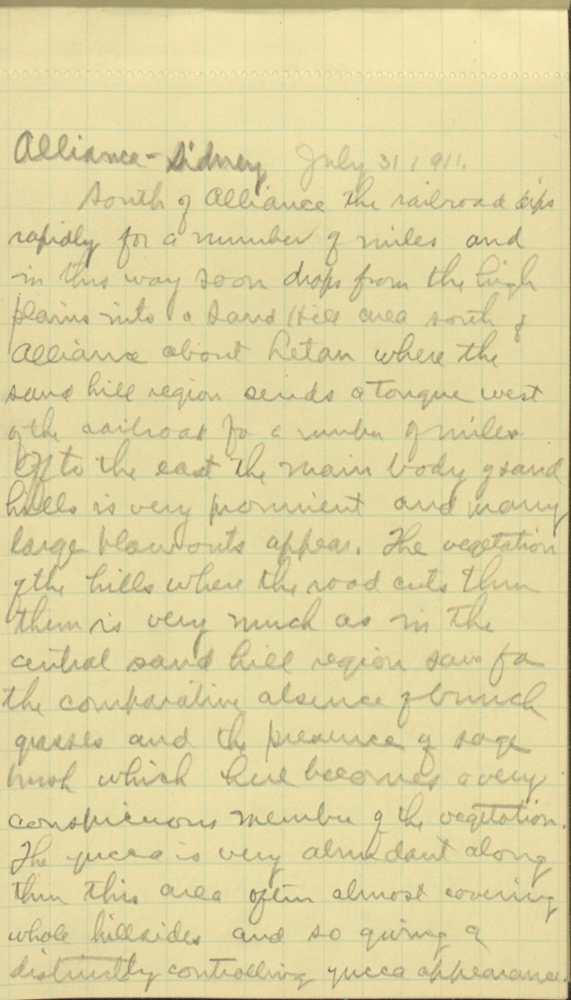 Alliance - Sidney July 31 1911.
South of Alliance the railroad dips
rapidly for a number of miles and
in this way soon drops from the high
plains into a Sand Hill area south of
Alliance about Letan where the
sand hill region sends a tongue west
of the railroad for a number of miles.
Off to the east the main body of sand
hills is very prominent and many
large blowouts appear. The vegetation
of the hills where the road cuts thru
them is very much as in the
central sand hill region save for
the comparative absence of bunch
grasses and the presence of sage
brush which here becomes a very
conspicuous member of the vegetation.
The yucca is very abundant along
thru this area often almost covering
whole hillsides and so giving a
distinctly controlling yucca appearance.